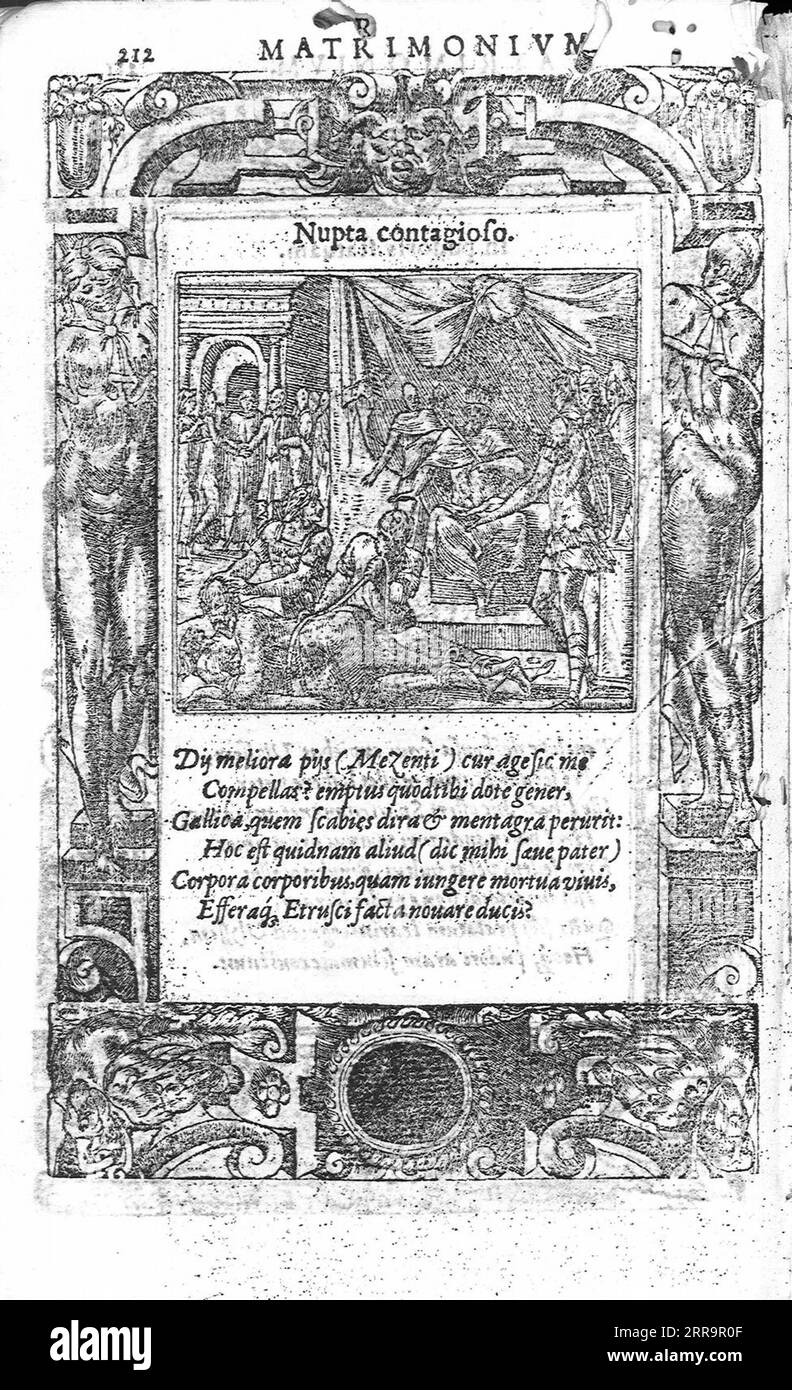 212 MATRIMONIVM
Nupta contagioſo.
Dij meliora pijs (Mezenti) cur age ſic me
Compellas? emptus quòd tibi dote gener,
Gallica, quem ſcabies dira & mentagra perurit:
Hoc eſt quidnam aliud (dic mihi ſæue pater)
Corpora corporibus, quam iungere mortua viuis,
Efferaq́; Etruſci facta nouare ducis?
alamy
alamy
Image ID: 2RR9R0F
www.alamy.com